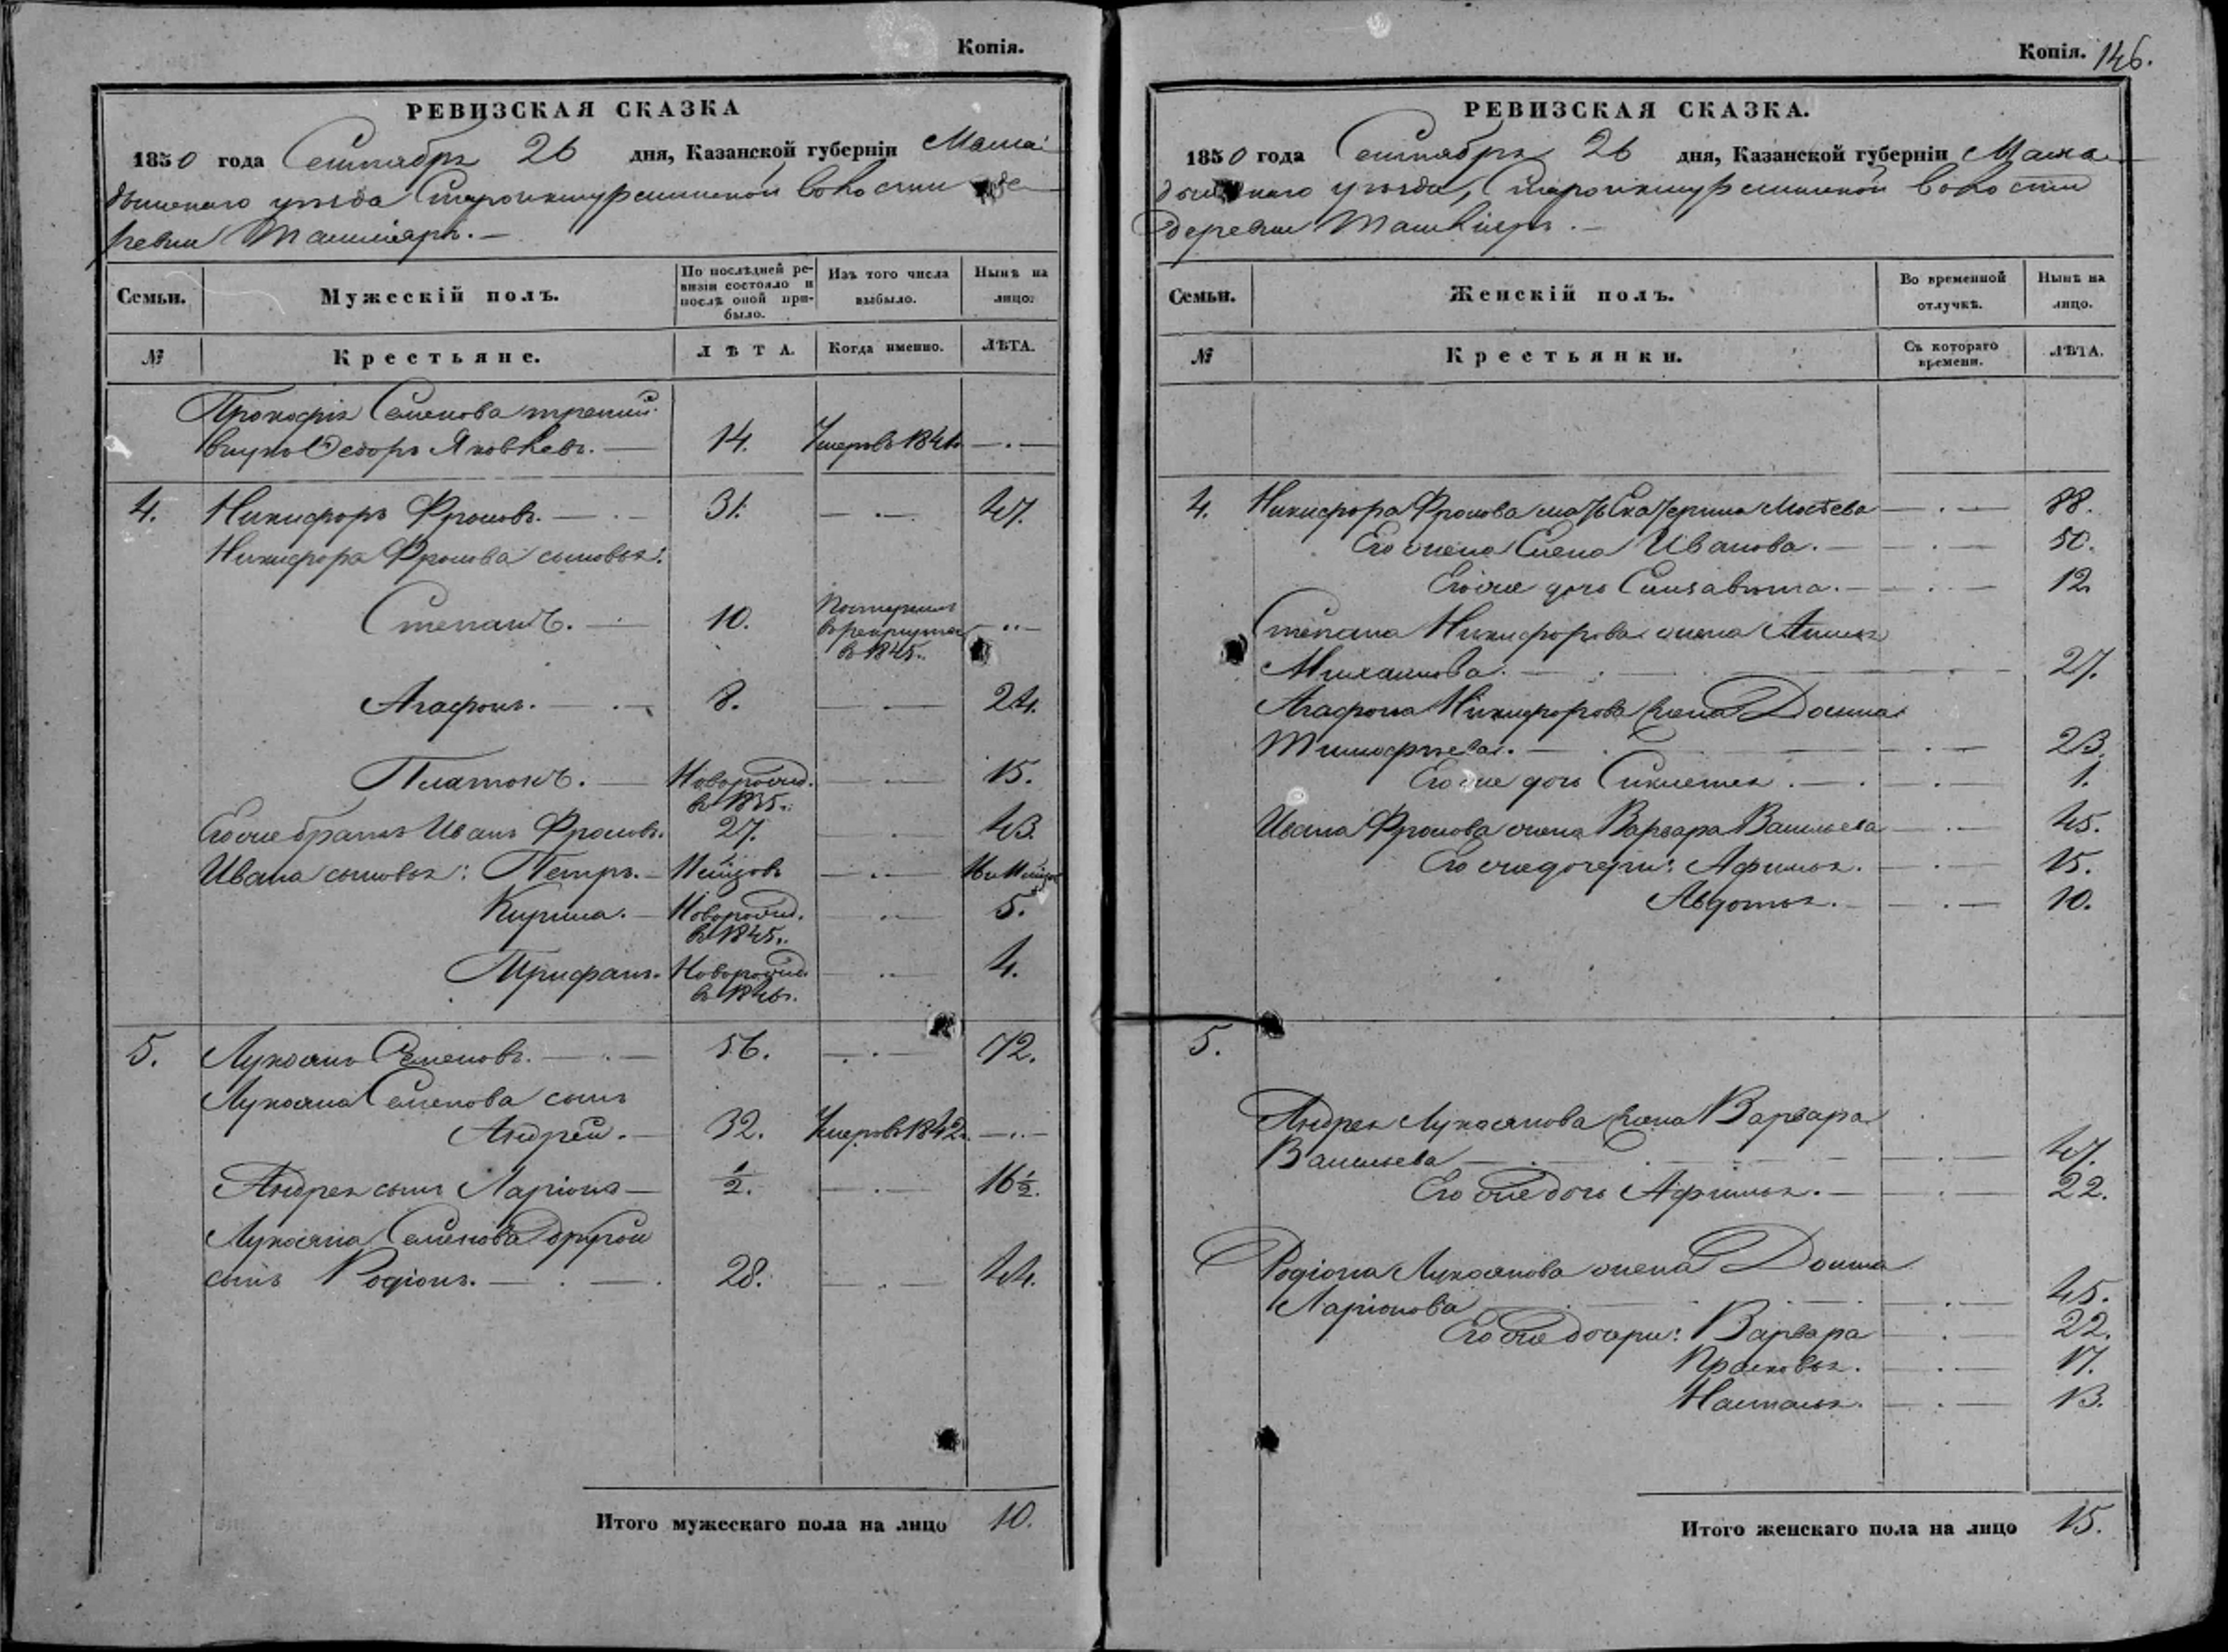 Копія.
РЕВИЗСКАЯ СКАЗКА
1850 года Сентября 26 дня, Казанской губерніи Мама-
дышскаго уѣзда Староикшурминской волости де-
ревни Ташкіяръ.
Семьи.
Мужескій полъ.
По послѣдней ре-
визіи состояло и
послѣ оной при-
было.
Изъ того числа
выбыло.
Нынѣ на
лицо.
№
Крестьяне.
ЛѢТА.
Когда именно.
ЛѢТА.
Прокофія Семенова третій
внукъ Федоръ Яковлевъ. 14. Умеръ въ 184
4. Никифоръ Фроловъ. 31. 47.
Никифора Фролова сыновья:
Степанъ. 10. Поступилъ
въ рекруты
въ 1845.
Агафонъ. 8. 24.
Платонъ. Новорожд. 15.
въ 1835.
Его же братъ Иванъ Фроловъ. 27. 43.
Ивана сыновья: Петръ.
Кирила. Новорожд. 5.
въ 1845.
Трифанъ. Новорожд. 4.
въ 1846.
5. Лукоянъ Семеновъ. 56. 72.
Лукояна Семенова сынъ
Андрей. 32. Умеръ въ 1842.
Андрея сынъ Ларіонъ 1/2. 16 1/2.
Лукояна Семенова другой
сынъ Родіонъ. 28. 44.
Итого мужескаго пола на лицо 10.
Копія. 146.
РЕВИЗСКАЯ СКАЗКА.
1850 года Сентября 26 дня, Казанской губерніи Мама-
дышскаго уѣзда, Староикшурминской волости
деревни Ташкіяръ.
Семьи.
Женскій полъ.
Во временной
отлучкѣ.
Нынѣ на
лицо.
№
Крестьянки.
Съ котораго
времени.
ЛѢТА.
4. Никифора Фролова мать Екатерина 88.
Его жена Елена Иванова. 50.
Его же дочь Елизавета. 12.
Степана Никифорова жена Анна
Михайлова. 27.
Агафона Никифорова жена Домна
Тимофѣева. 23.
Его же дочь 1.
Ивана Фролова жена Варвара Васильева 45.
Его же дочери: Афимья. 15.
Авдотья. 10.
5.
Андрея Лукоянова жена Варвара
Васильева 47.
Его же дочь Афимья. 22.
Родіона Лукоянова жена Домна
Ларіонова 45.
Его же дочери: Варвара 22.
Прасковья. 17.
Настасья. 13.
Итого женскаго пола на лицо 15.